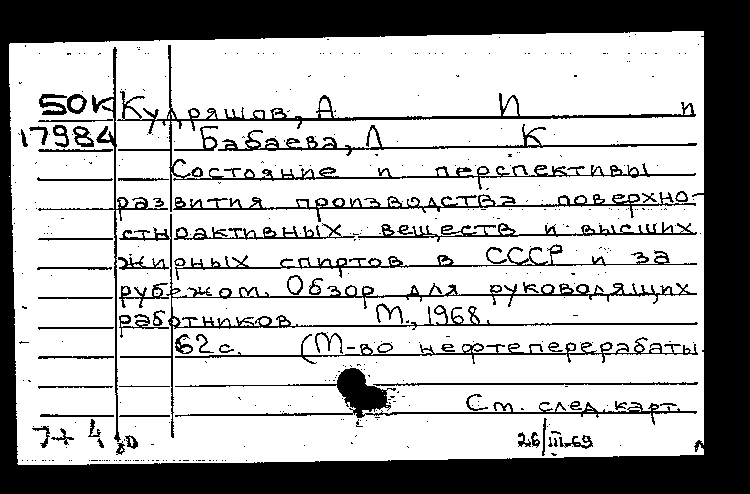 50К Кудряшов, А И и
17984 Бабаева, Л К
Состояние и перспективы
развития производства поверхно-
стноактивных веществ и высших
жирных спиртов в СССР и за
рубежом. Обзор для руководящих
работников М., 1968.
62с. (М-во нефтеперерабаты
См. след. карт.
26/III-69